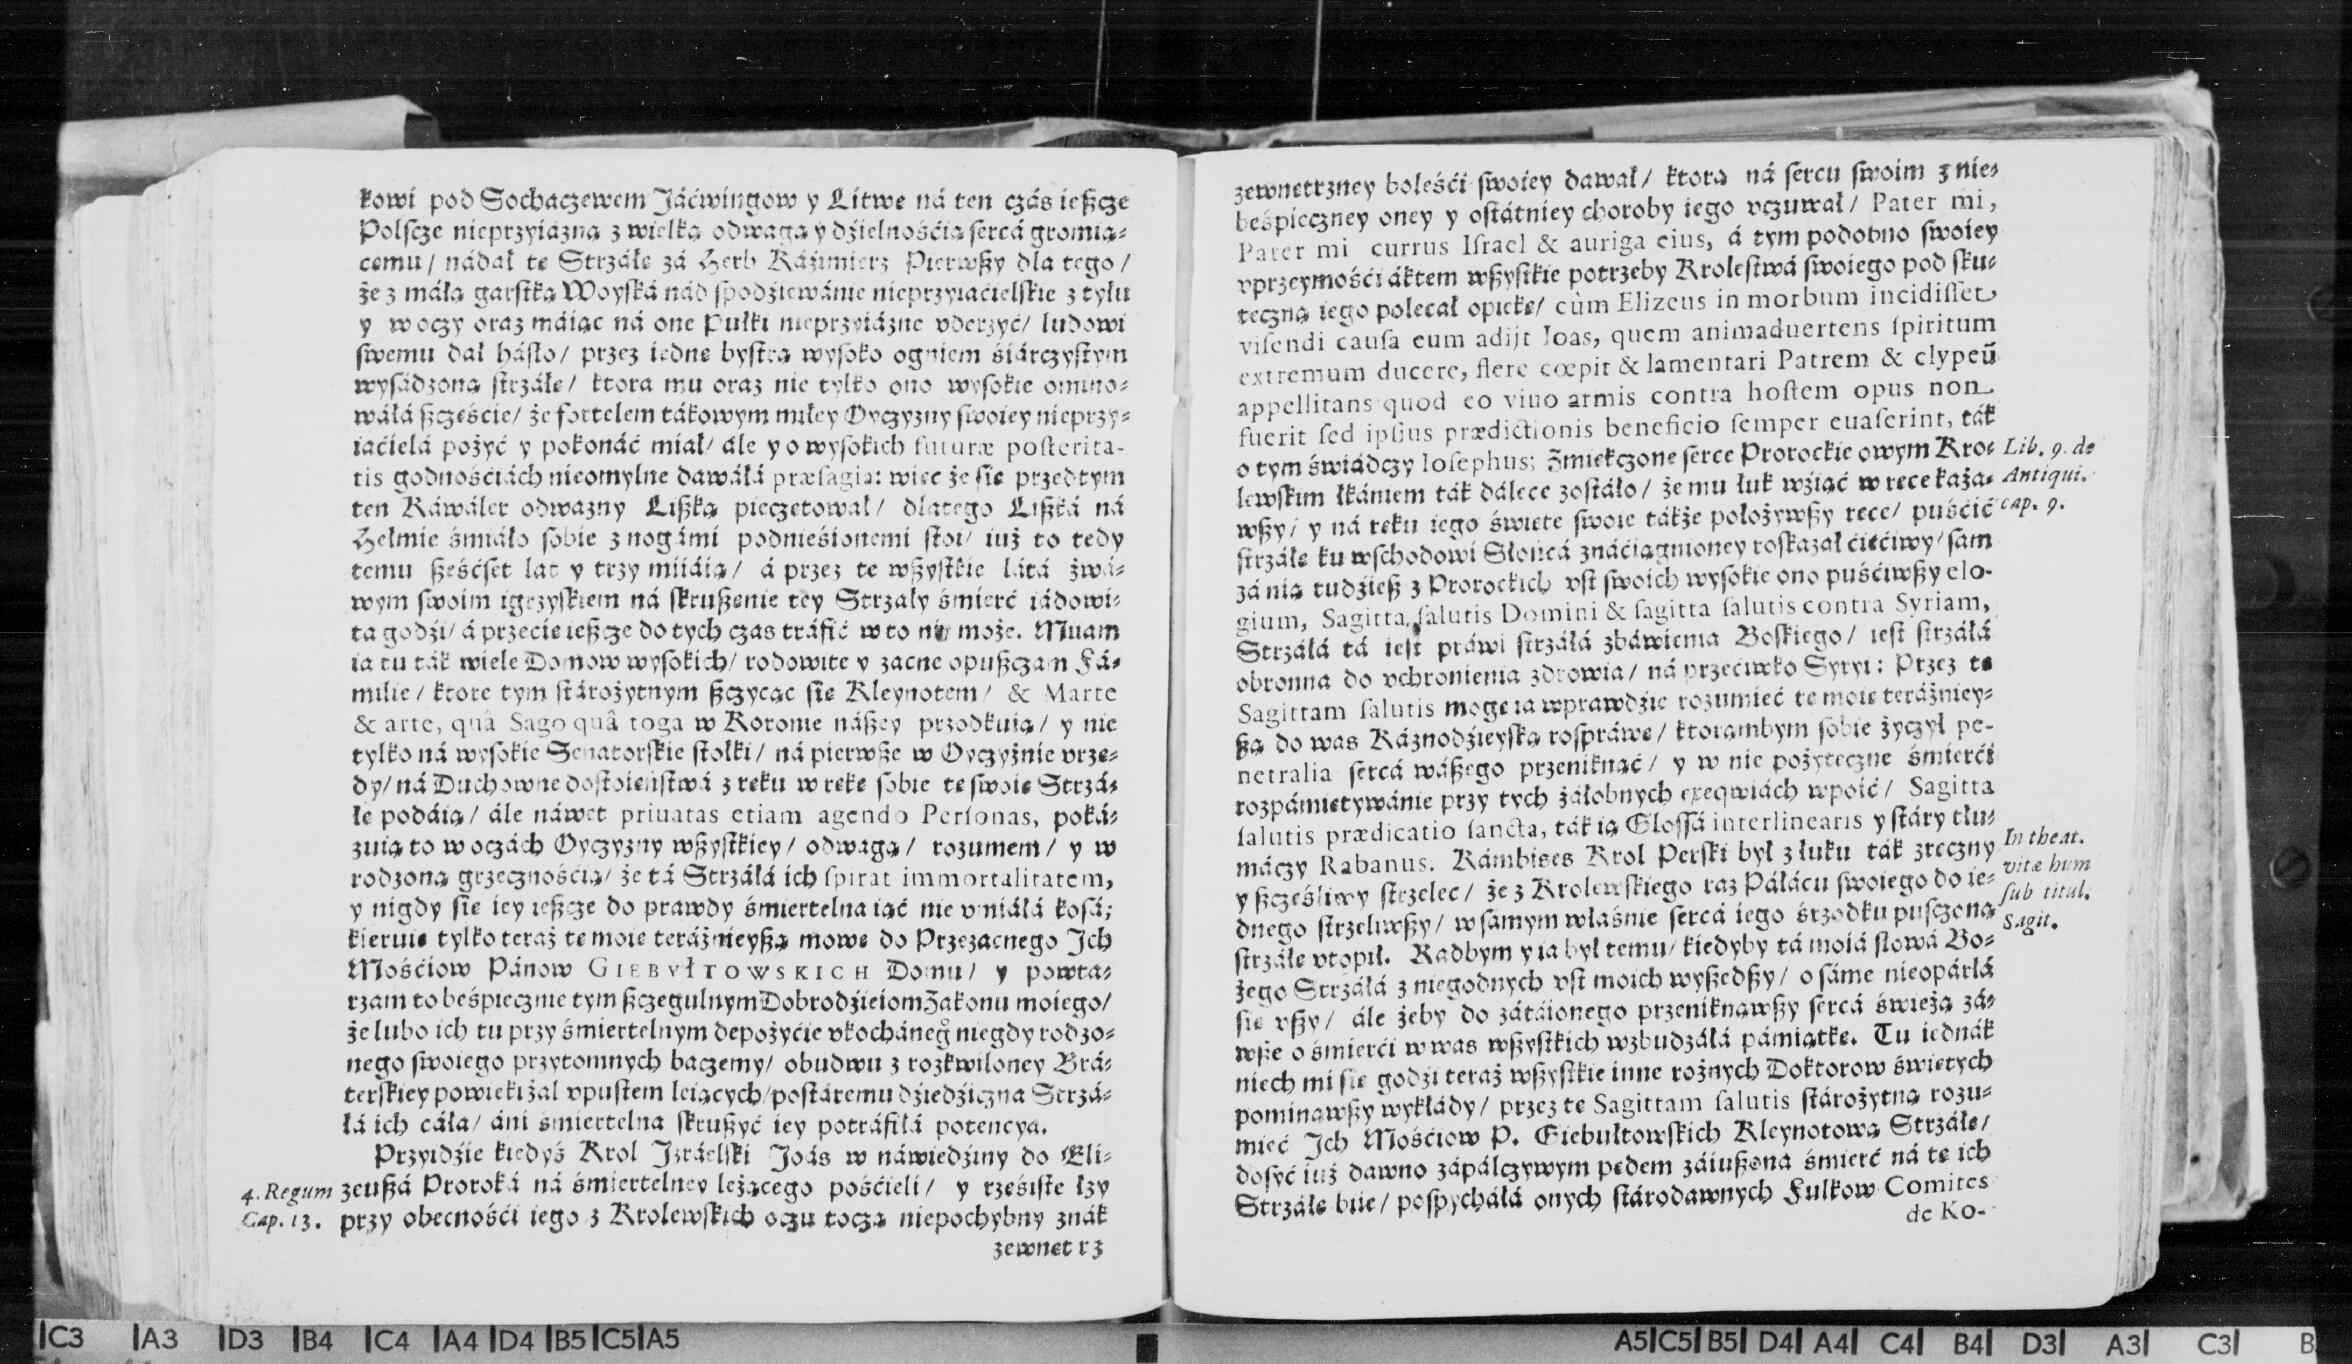 kowi pod Sochaczewem Jáćwingow y Litwe ná ten czás ießcze
Polſcze nieprzyiázną z wielką odwagą y dźielnośćią ſercá gromią-
cemu / nádał te Strzáłe zá Herb Káźimierz Pierwßy dla tego /
że z máłą garſtką Woyſká nád ſpodźiewánie nieprzyiaćielſkie z tyłu
y w oczy oraz máiąc ná one Pułki nieprzyiázne vderzyć / ludowi
ſwemu dał háſło / przez iedne byſtrą wyſoko ogniem śiárczyſtym
wyſádzoną ſtrzáłe / ktora mu oraz nie tylko ono wyſokie omino-
wáłá ßczęśćie / że fortelem tákowym miłey Oyczyzny ſwoiey nieprzy-
iaćielá pożyć y pokonáć miał / ále y o wyſokich futuræ poſterita-
tis godnośćiách nieomylne dawáłá præſagia: wiec że ſie przedtym
ten Káwáler odwazny Lißką pieczętował / dlatego Lißká ná
Hełmie śmiáło ſobie z nogámi podnieśionemi ſtoi / iuż to tedy
temu ßeśćſet lat y trzy miiáią / á przez te wßyſtkie látá żwá-
wym ſwoim igrzyſkiem ná ſkrußenie tey Strzały śmierć iádowi-
ta godźi / á przecie ießcze do tych czas tráfić w to nie może. Miiam
ia tu ták wiele Domow wyſokich / rodowite y zacne opußczam Fá-
milie / ktore tym ſtárożytnym ßczycąc ſie Kleynotem / & Marte
& arte, quâ Sago quâ toga w Koronie náßey przodkuią / y nie
tylko ná wyſokie Senatorſkie ſtołki / ná pierwße w Oyczyźnie vrzę-
dy / ná Duchowne doſtoieńſtwá z reku w reke ſobie te ſwoie Strzá-
łe podáią / ále náwet priuatas etiam agendo Perſonas, poká-
zuią to w oczách Oyczyzny wßyſtkiey / odwagą / rozumem / y w
rodzoną grzecznośćią / że tá Strzáłá ich ſpirat immortalitatem,
y nigdy ſie iey ießcze do prawdy śmiertelna iąć nie vmiáłá koſá;
kieruie tylko teraż te moie teráźnieyßą mowe do Przezacnego Ich
Mośćiow Pánow GIEBVŁTOWSKICH Domu / y powta-
rzam to beśpiecznie tym ßczegulnym Dobrodźieiom Zakonu moiego /
że lubo ich tu przy śmiertelnym depożyćie vkocháneg̊ niegdy rodzo-
nego ſwoiego przytomnych baczemy / obudwu z rozkwiloney Brá-
terſkiey powieki żal vpuſtem leiących / poſtáremu dźiedźiczna Strzá-
łá ich cáła / áni śmiertelna ſkrußyć iey potráfiłá potencya.
Przyidźie kiedyś Krol Jzráelſki Joás w náwiedźiny do Eli-
4. Regum zeußá Proroká ná śmiertelney leżącego pośćieli / y rześiſte łzy
Cap. 13. przy obecnośći iego z Krolewſkich oczu tocżą niepochybny znák
zewnetrz
zewnetrzney boleśći ſwoiey dawał / ktorą ná ſercu ſwoim z nie-
beśpieczney oney y oſtátniey choroby iego vczuwał / Pater mi,
Pater mi currus Iſrael & auriga eius, á tym podobno ſwoiey
vprzeymośći áktem wßyſtkie potrzeby Kroleſtwá ſwoiego pod ſku-
teczną iego polecał opieke / cùm Elizeus in morbum incidiſſet
viſendi cauſa eum adijt Ioas, quem animaduertens ſpiritum
extremum ducere, flere cœpit & lamentari Patrem & clypeũ
appellitans quod eo viuo armis contra hoſtem opus non
fuerit ſed ipſius prædictionis beneficio ſemper euaſerint, ták
o tym świádczy Ioſephus; Zmiekczone ſerce Prorockie owym Kro- Lib. 9. de
lewſkim łkániem ták dálece zoſtáło / że mu łuk wźiąć w rece każa- Antiqui.
wßy / y ná reku iego świete ſwoie tákże położywßy rece / puśćić cap. 9.
ſtrzáłe ku wſchodowi Słońcá znáćiągnioney roſkazał ćiećiwy / ſam
zá nią tudźieß z Prorockich vſt ſwoich wyſokie ono puśćiwßy elo-
gium, Sagitta ſalutis Domini & ſagitta ſalutis contra Syriam,
Strzáłá tá ieſt práwi ſtrzáłá zbáwienia Boſkiego / ieſt ſtrzáłá
obronna do vchronienia zdrowia / ná przećiwko Syryi: Przez te
Sagittam ſalutis moge ia wprawdźie rozumieć te moie teráźniey-
ßą do was Káznodźieyſką roſpráwe / ktorąmbym ſobie życzył pe-
netralia ſercá wáßego przeniknąć / y w nie pożyteczne śmierći
rozpámietywánie przy tych żáłobnych exeqwiách wpoić / Sagitta
ſalutis prædicatio ſancta, ták ią Gloſſá interlinearis y ſtáry tłu-
máczy Rabanus. Kámbises Krol Perſki był z łuku ták zreczny In theat.
y ßcześliwy ſtrzelec / że z Krolewſkiego raz Páłácu ſwoiego do ie- vitæ hum
dnego ſtrzeliwßy / w ſamym właśnie ſercá iego śrzodku puſczoną ſub titul.
ſtrzáłe vtopił. Radbym y ia był temu / kiedyby tá moiá ſłowá Bo- Sagit.
żego Strzáłá z niegodnych vſt moich wyßedßy / o ſáme nieopárłá
ſie vßy / ále żeby do zátáionego przeniknąwßy ſercá świeżą zá-
wße o śmierći w was wßyſtkich wzbudzáłá pámiątke. Tu iednák
niech mi ſie godźi teraż wßyſtkie inne rożnych Doktorow świetych
pominąwßy wykłády / przez te Sagittam ſalutis ſtárożytną rozu-
mieć Jch Mośćiow P. Giebułtowſkich Kleynotową Strzáłe /
doſyć iuż dawno zápálczywym pedem záiußona śmierć ná te ich
Strzáłe biie / poſpycháłá onych ſtárodawnych Fulkow Comites
de Ko-